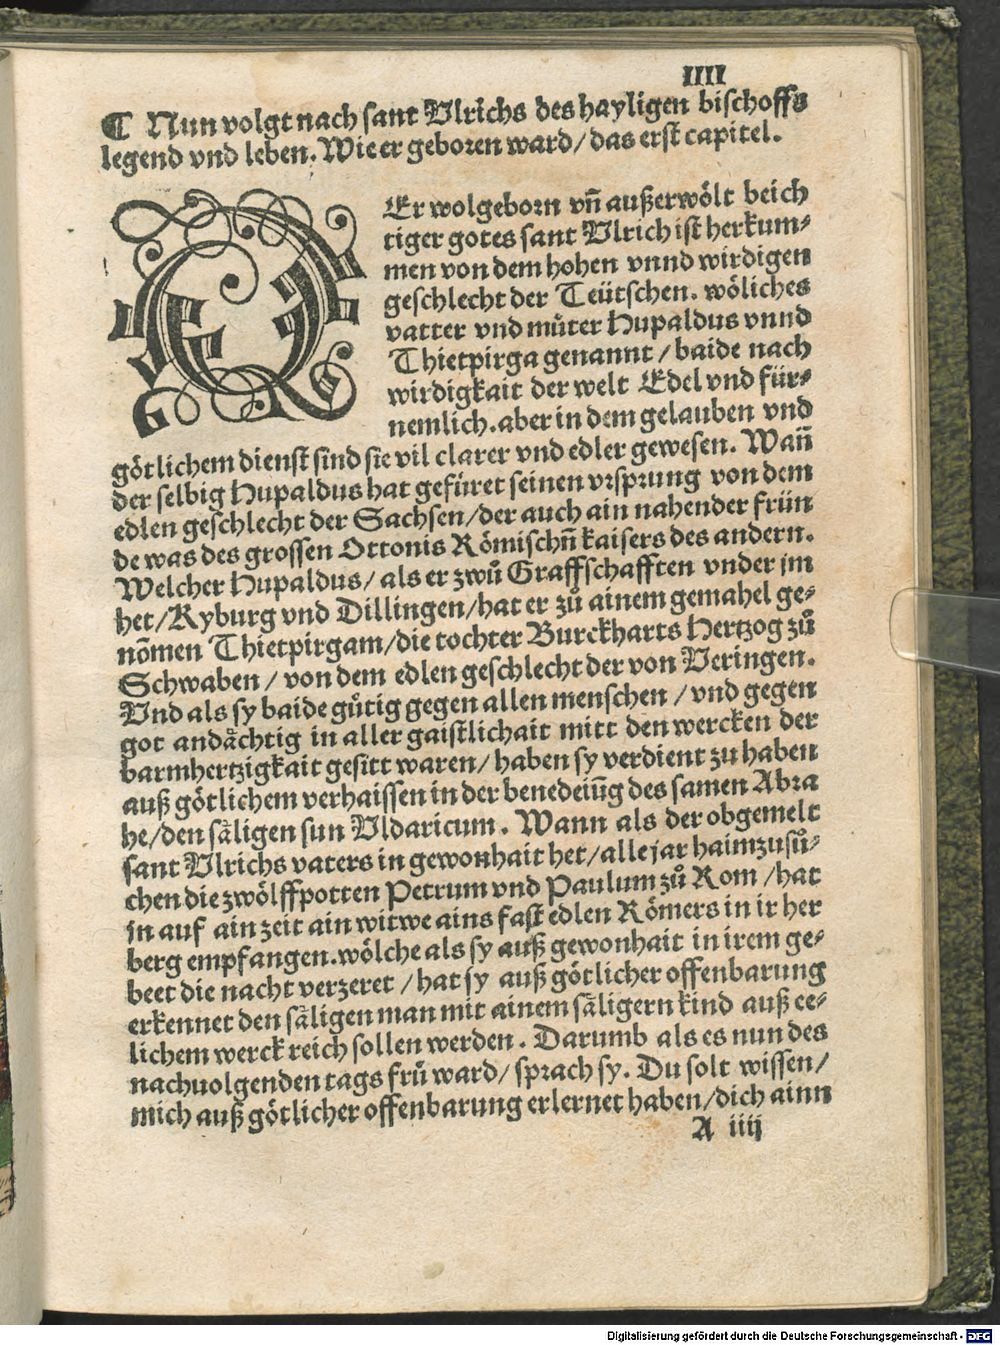 IIII
¶ Nun volgt nach sant Vlrichs des hayligen bischoffs
legend vnd leben. Wie er geboren ward/ das erst capitel.
DEr wolgeborn vn̄ außerwoͤlt beich
tiger gotes sant Vlrich ist herkum⸗
men von dem hohen vnnd wirdigen
geschlecht der Teütschen. woͤliches
vatter vnd muͦter Hupaldus vnnd
Thietpirga genannt / baide nach
wirdigkait der welt Edel vnd für⸗
nemlich. aber in dem gelauben vnd
goͤtlichem dienst sind sie vil clarer vnd edler gewesen. Wan̄
der selbig Hupaldus hat gefüret seinen vrsprung von dem
edlen geschlecht der Sachsen/der auch ain nahender frün
de was des grossen Ottonis Roͤmischn̄ kaisers des andern.
Welcher Hupaldus/ als er zwuͦ Graffschafften vnder jm
het/Kyburg vnd Dillingen/hat er zuͦ ainem gemahel ge⸗
nōmen Thietpirgam/die tochter Burckharts Hertzog zuͦ
Schwaben / von dem edlen geschlecht der von Veringen.
Vnd als sy baide guͤtig gegen allen menschen / vnd gegen
got andaͤchtig in aller gaistlichait mitt den wercken der
barmhertzigkait gesitt waren/ haben sy verdient zu haben
auß goͤtlichem verhaissen in der benedeiūg des samen Abra
he/den saͤligen sun Vldaricum. Wann als der obgemelt
sant Vlrichs vaters in gewonhait het/alle jar haimzusuͦ⸗
chen die zwoͤlffpotten Petrum vnd Paulum zuͦ Rom /hat
jn auf ain zeit ain witwe ains fast edlen Roͤmers in ir her
berg empfangen.woͤlche als sy auß gewonhait in irem ge⸗
beet die nacht verzeret / hat sy auß goͤtlicher offenbarung
erkennet den saͤligen man mit ainem saͤligern kind auß ee⸗
lichem werck reich sollen werden. Darumb als es nun des
nachuolgenden tags fruͦ ward/ sprach sy. Du solt wissen/
mich auß goͤtlicher offenbarung erlernet haben/dich ainn
A iiij
Digitalisierung gefördert durch die Deutsche Forschungsgemeinschaft - DFG